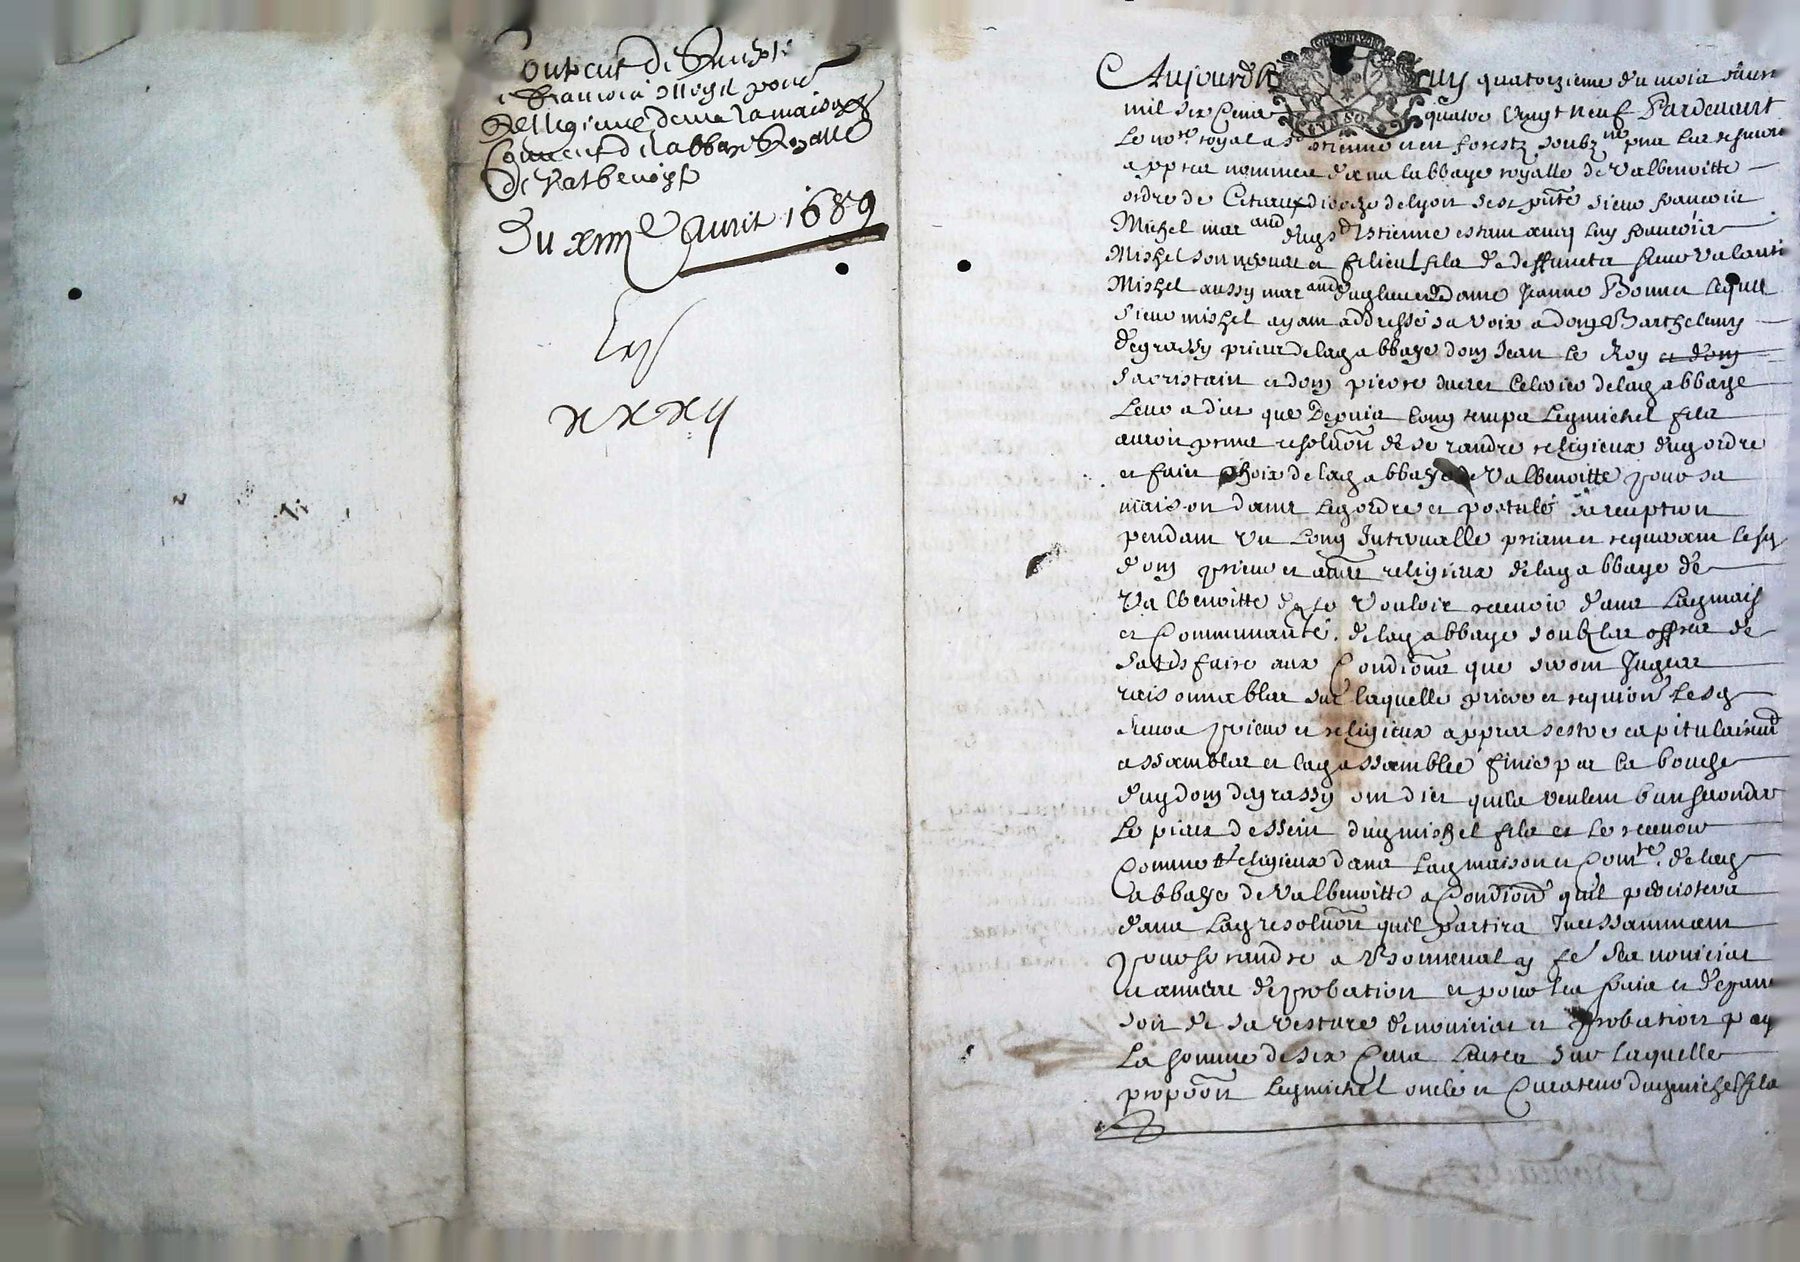 Contract de Recepti
François Michel pour
Relligieux dans la maison et
Couvent de labbaye Royalle
de Valbenoiste
Du xiiii^e Avril 1689
xxxii
Aujourdhuy quatorzieme du mois d'avril
mil six cens quatre vingt neuf Pardevant
Le no^re royal a S^t Estienne en forestz soubz^ne
apprez nommez dans labbaye royalle de Valbenoitte
ordre de Citaux dioceze de lyon sest p^nte sieur francois
Michel mar^and dud S^t Estienne estant avec luy francois
Michel son nepveu et filieul filz de deffuncts sieur Valanti
Michel aussy mar^and dud lieu et dame Jeanne Bonnet lequel
Sieur michel ayant addressé sa voix a dom Barthelemy
degrassy prieur de lad abbaye dom Jean le Roy et dom
sacristain et dom pierre celerier de lad abbaye
Leur a dict que depuis long temps led michel filz
auroit prins resolu^on de se randre religieux dud ordre
et faict choix de lad abbaye de Valbenoitte pour sa
maison dans led ordre et postulé sa reception
pendant un long Intervalle priant et requerant lesd
dom prieur et autres religieux de lad abbaye de
Valbenoitte de le vouloir recevoir dans lad mais
et Communauté de lad abbaye soubz les offres de
satisfaire aux Condi^ons que seront Jugees
raisonnables sur laquelle priere et requi^on lesd
sieurs prieur et religieux apprez sestre capitulairem^t
assemblez et lad assemblee finie par la bouche
dud dom degrassy ont dict quilz veulent bien seconder
Le pieux dessein dud michel filz et le recevoir
Comme Religieux dans lad maison et Com^té de lad
abbaye de Valbenoitte a Condi^on quil persistera
dans lad resolu^on quil partira Incessamment
pour se randre a Bonneval y fe^ son noviciat
et annee de probation et pour les frais et depans
soit de sa vesture de noviciat et probation pay
La somme de six Cens livres sur laquelle
propo^on led michel oncle et Curateur dud michel filz